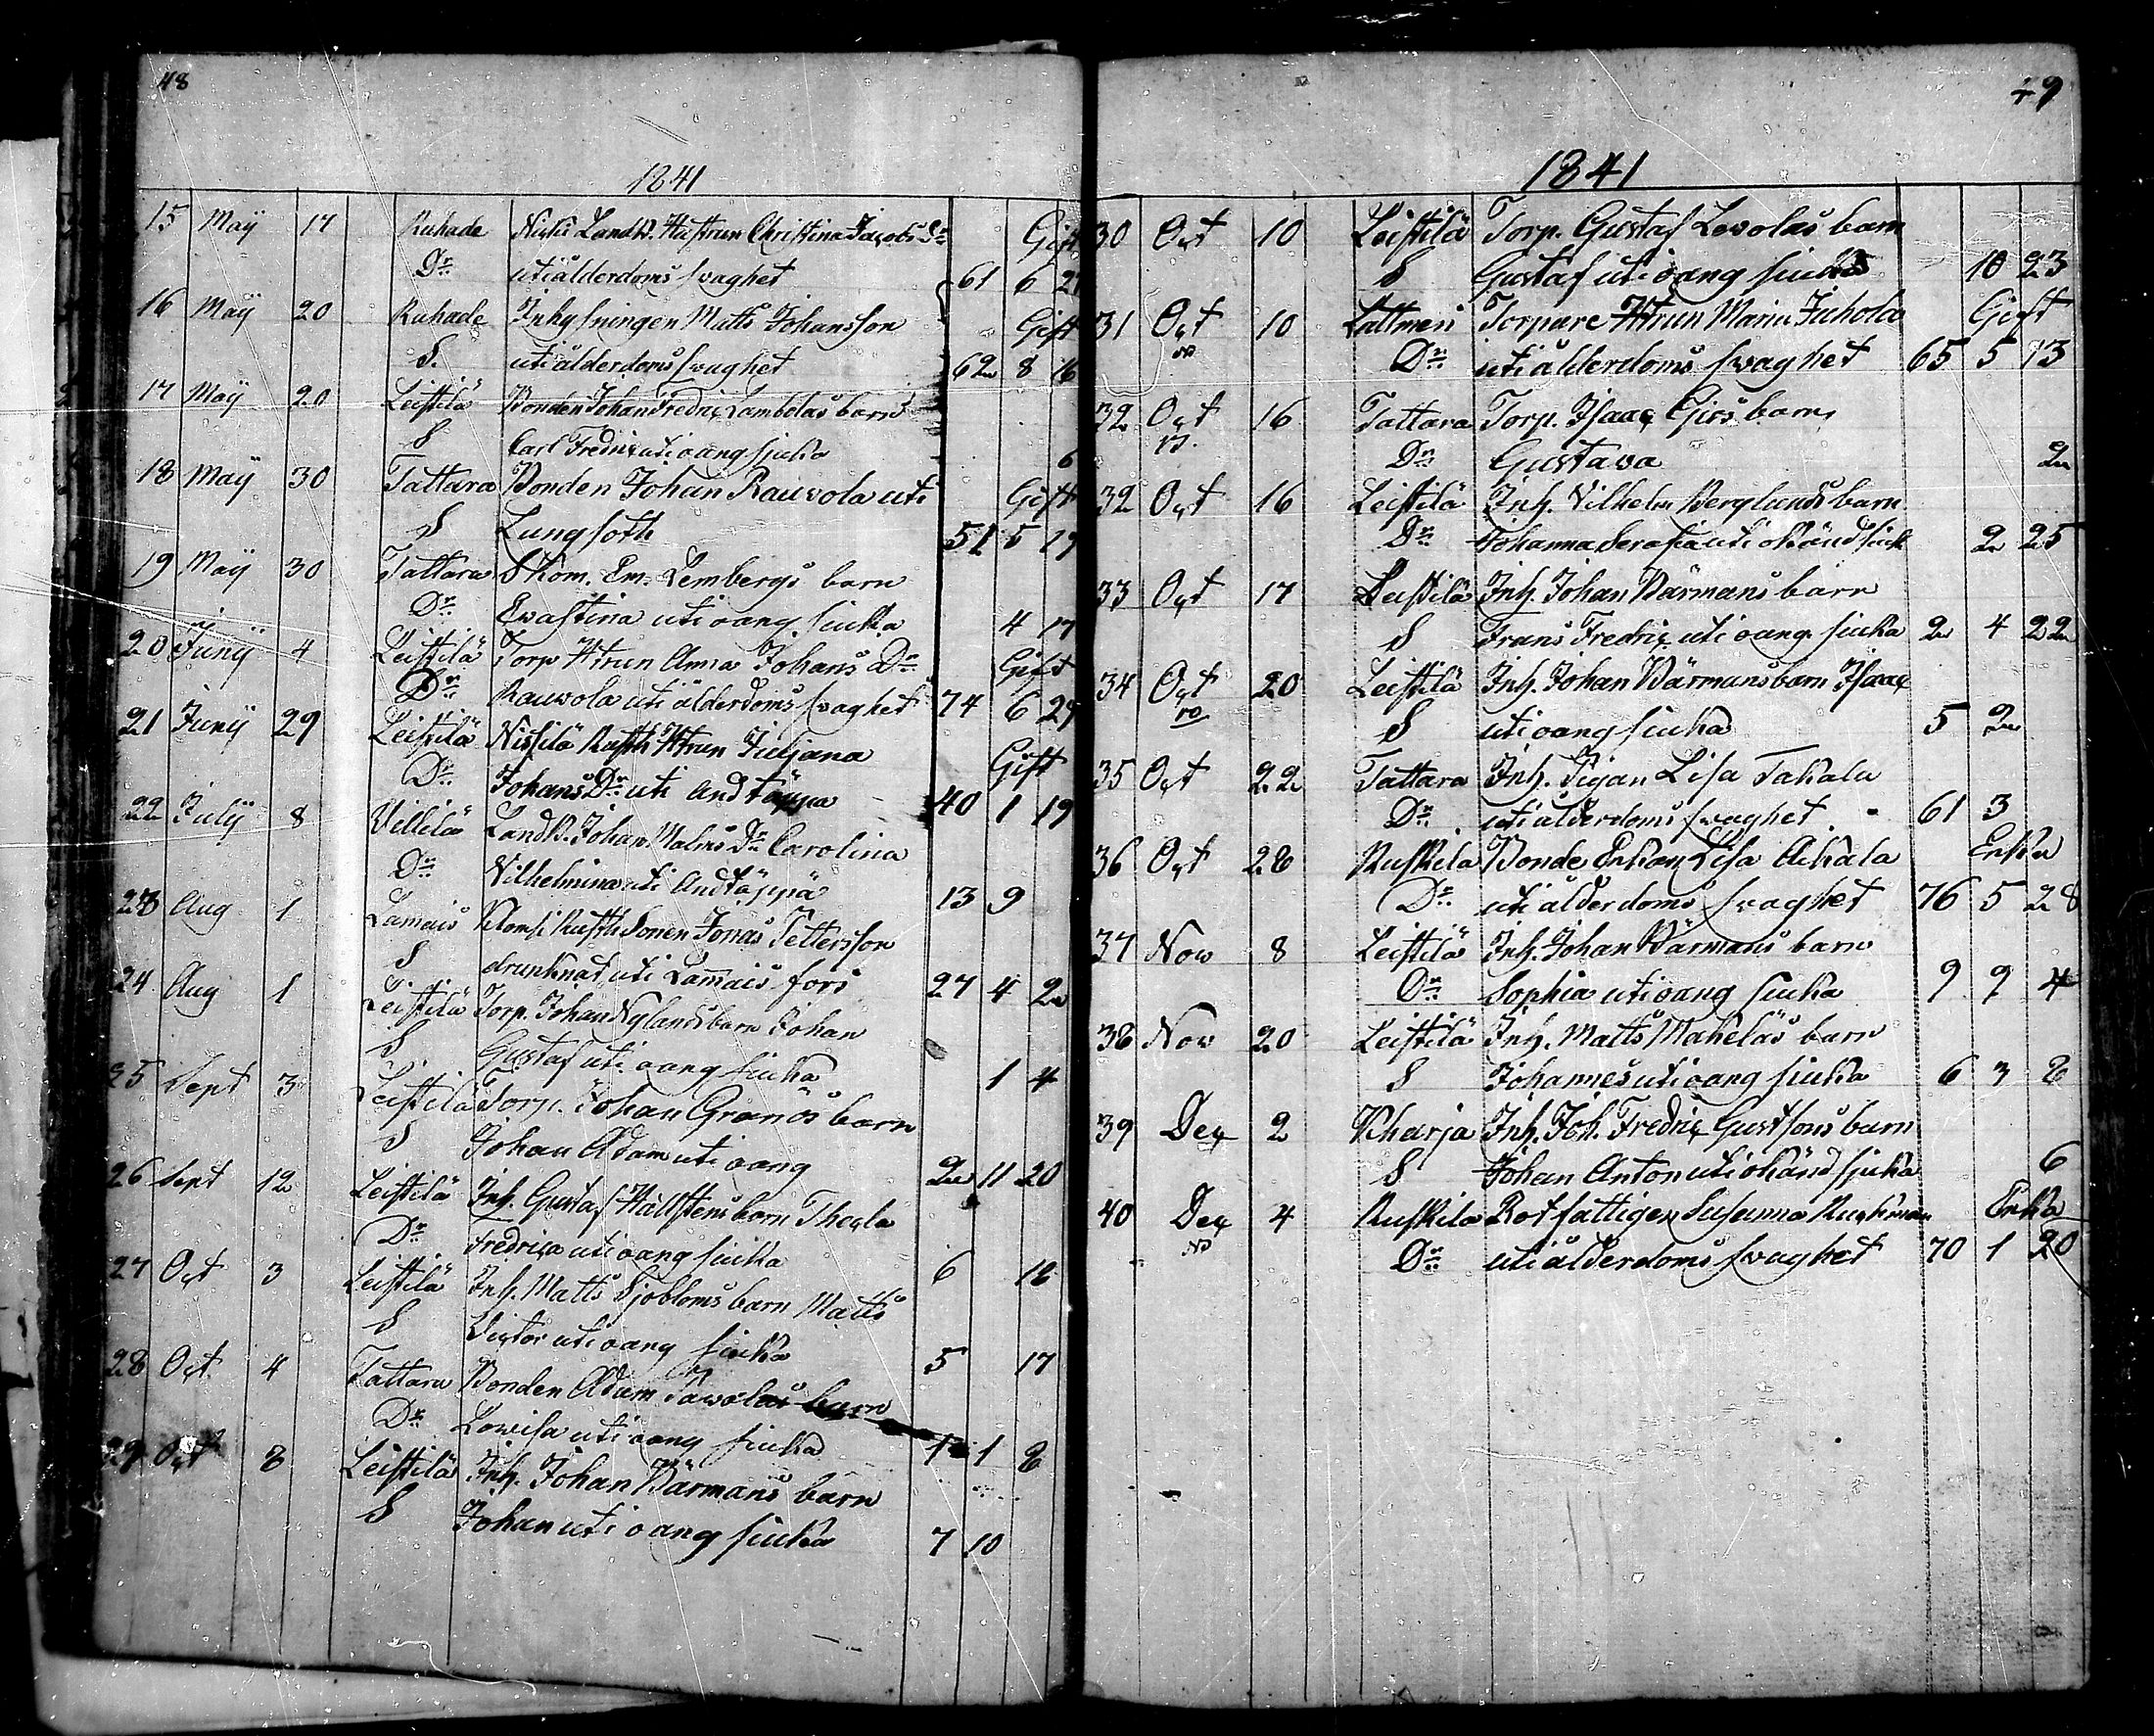 48
1841
15 Maÿ 17 Ruhade Landtb. Hustrun Christina Jacobs Dr Gift
Dr utiålderdoms swaghet 61 6 27
16 Maÿ 20 Ruhade Inhysningen Matts Johansson Gift
S. utiålderdoms swaghet 62 8 16
17 Maÿ 20 Leistilä Bonden Johan Fredric Lambolas barn
S Carl Fredric uti oang sjuka 6
18 Maÿ 30 Tattara Bonden Johan Rauvola uti Gift
S Lungsoth 51 5 19
19 Maÿ 30 Tattara Skom. Em. Lembergs barn
Dr Evastina uti oang siuka 4 17
20 Junÿ 4 Leistilä Torp Htrun Anna Johans Dr Gift
Dr Rauvola uti ålderdoms swaghet 74 6 29
21 Junÿ 29 Leistilä Nissilä Rusth Htrun Juljana Gift
Dr Johans Dr uti andtäppa 40 1 19
22 Julÿ 8 Villilä Landtb. Johan Malms Dr Carolina
Dr Vilhelmina uti Andtäppa 13 9
23 Aug 1 Lamais Klomsi Rusth Sonen Jonas Pettersson
S drunknat uti Lamais fors 27 4 2
24 Aug 1 Leistilä Torp. Johan Nylands barn Johan
S Gustaf uti oang siuka 1 4
25 Sept 3 Leistilä Torp. Johan Granös barn
S Johan Adam uti oang 2 11 20
26 Sept 12 Leistilä Inh. Gustaf Hällstens barn Thecla
Dr Fredrica uti oang siuka 6 18
27 Oct 3 Leistilä Inh. Matts Sjobloms barn Matts
S Victor uti oang siuka 5 17
28 Oct 4 Tattara Bonden Adam barn
Dr Lovisa uti oang siuka 1 1 8
29 Oct 8 Leistilä Inh. Johan Wärmans barn
S Johan uti oang siuka 7 10
49
1841
30 Oct 10 Leistilä Torp. Gustaf Levolas barn
S Gustaf uti oang siuka 10 23
31 Oct 10 Lattmeri Torpare Htrun Maria Juhola Gift
Dr uti ålderdoms swaghet 65 5 13
32 Oct 16 Tattara Torp. Isaac barn
Dr Gustava 2
32 Oct 16 Leistilä Inh. Vilhelm Berglunds barn
Dr Johanna Serafia uti okänd siuk 2 25
33 Oct 17 Leistilä Inh. Johan Wärmans barn
S Frans Fredric uti oang siuka 2 4 22
34 Oct 20 Leistilä Inh. Johan Wärmans barn Isaac
S uti oang siuka 5 2
35 Oct 22 Tattara Inh. Pigan Lisa Takala
Dr uti ålderdoms swaghet 61 3
36 Oct 28 Ruskila Bonde Enkan Lisa Ackala Enka
Dr uti ålderdoms swaghet 76 5 28
37 Nov 8 Leistilä Inh. Johan Wärmans barn
Dr Sophia uti oang siuka 9 9 4
38 Nov 20 Leistilä Inh. Matts Mäkeläs barn
S Johannes uti oang siuka 6 3 8
39 Dec 2 Kharja Inh. Joh. Fredric Gustfsons barn
S Johan Anton uti okänd sjuka 6
40 Dec 4 Ruskila Rotfattigen Susanna Enka
Dr uti ålderdoms swaghet 70 1 20